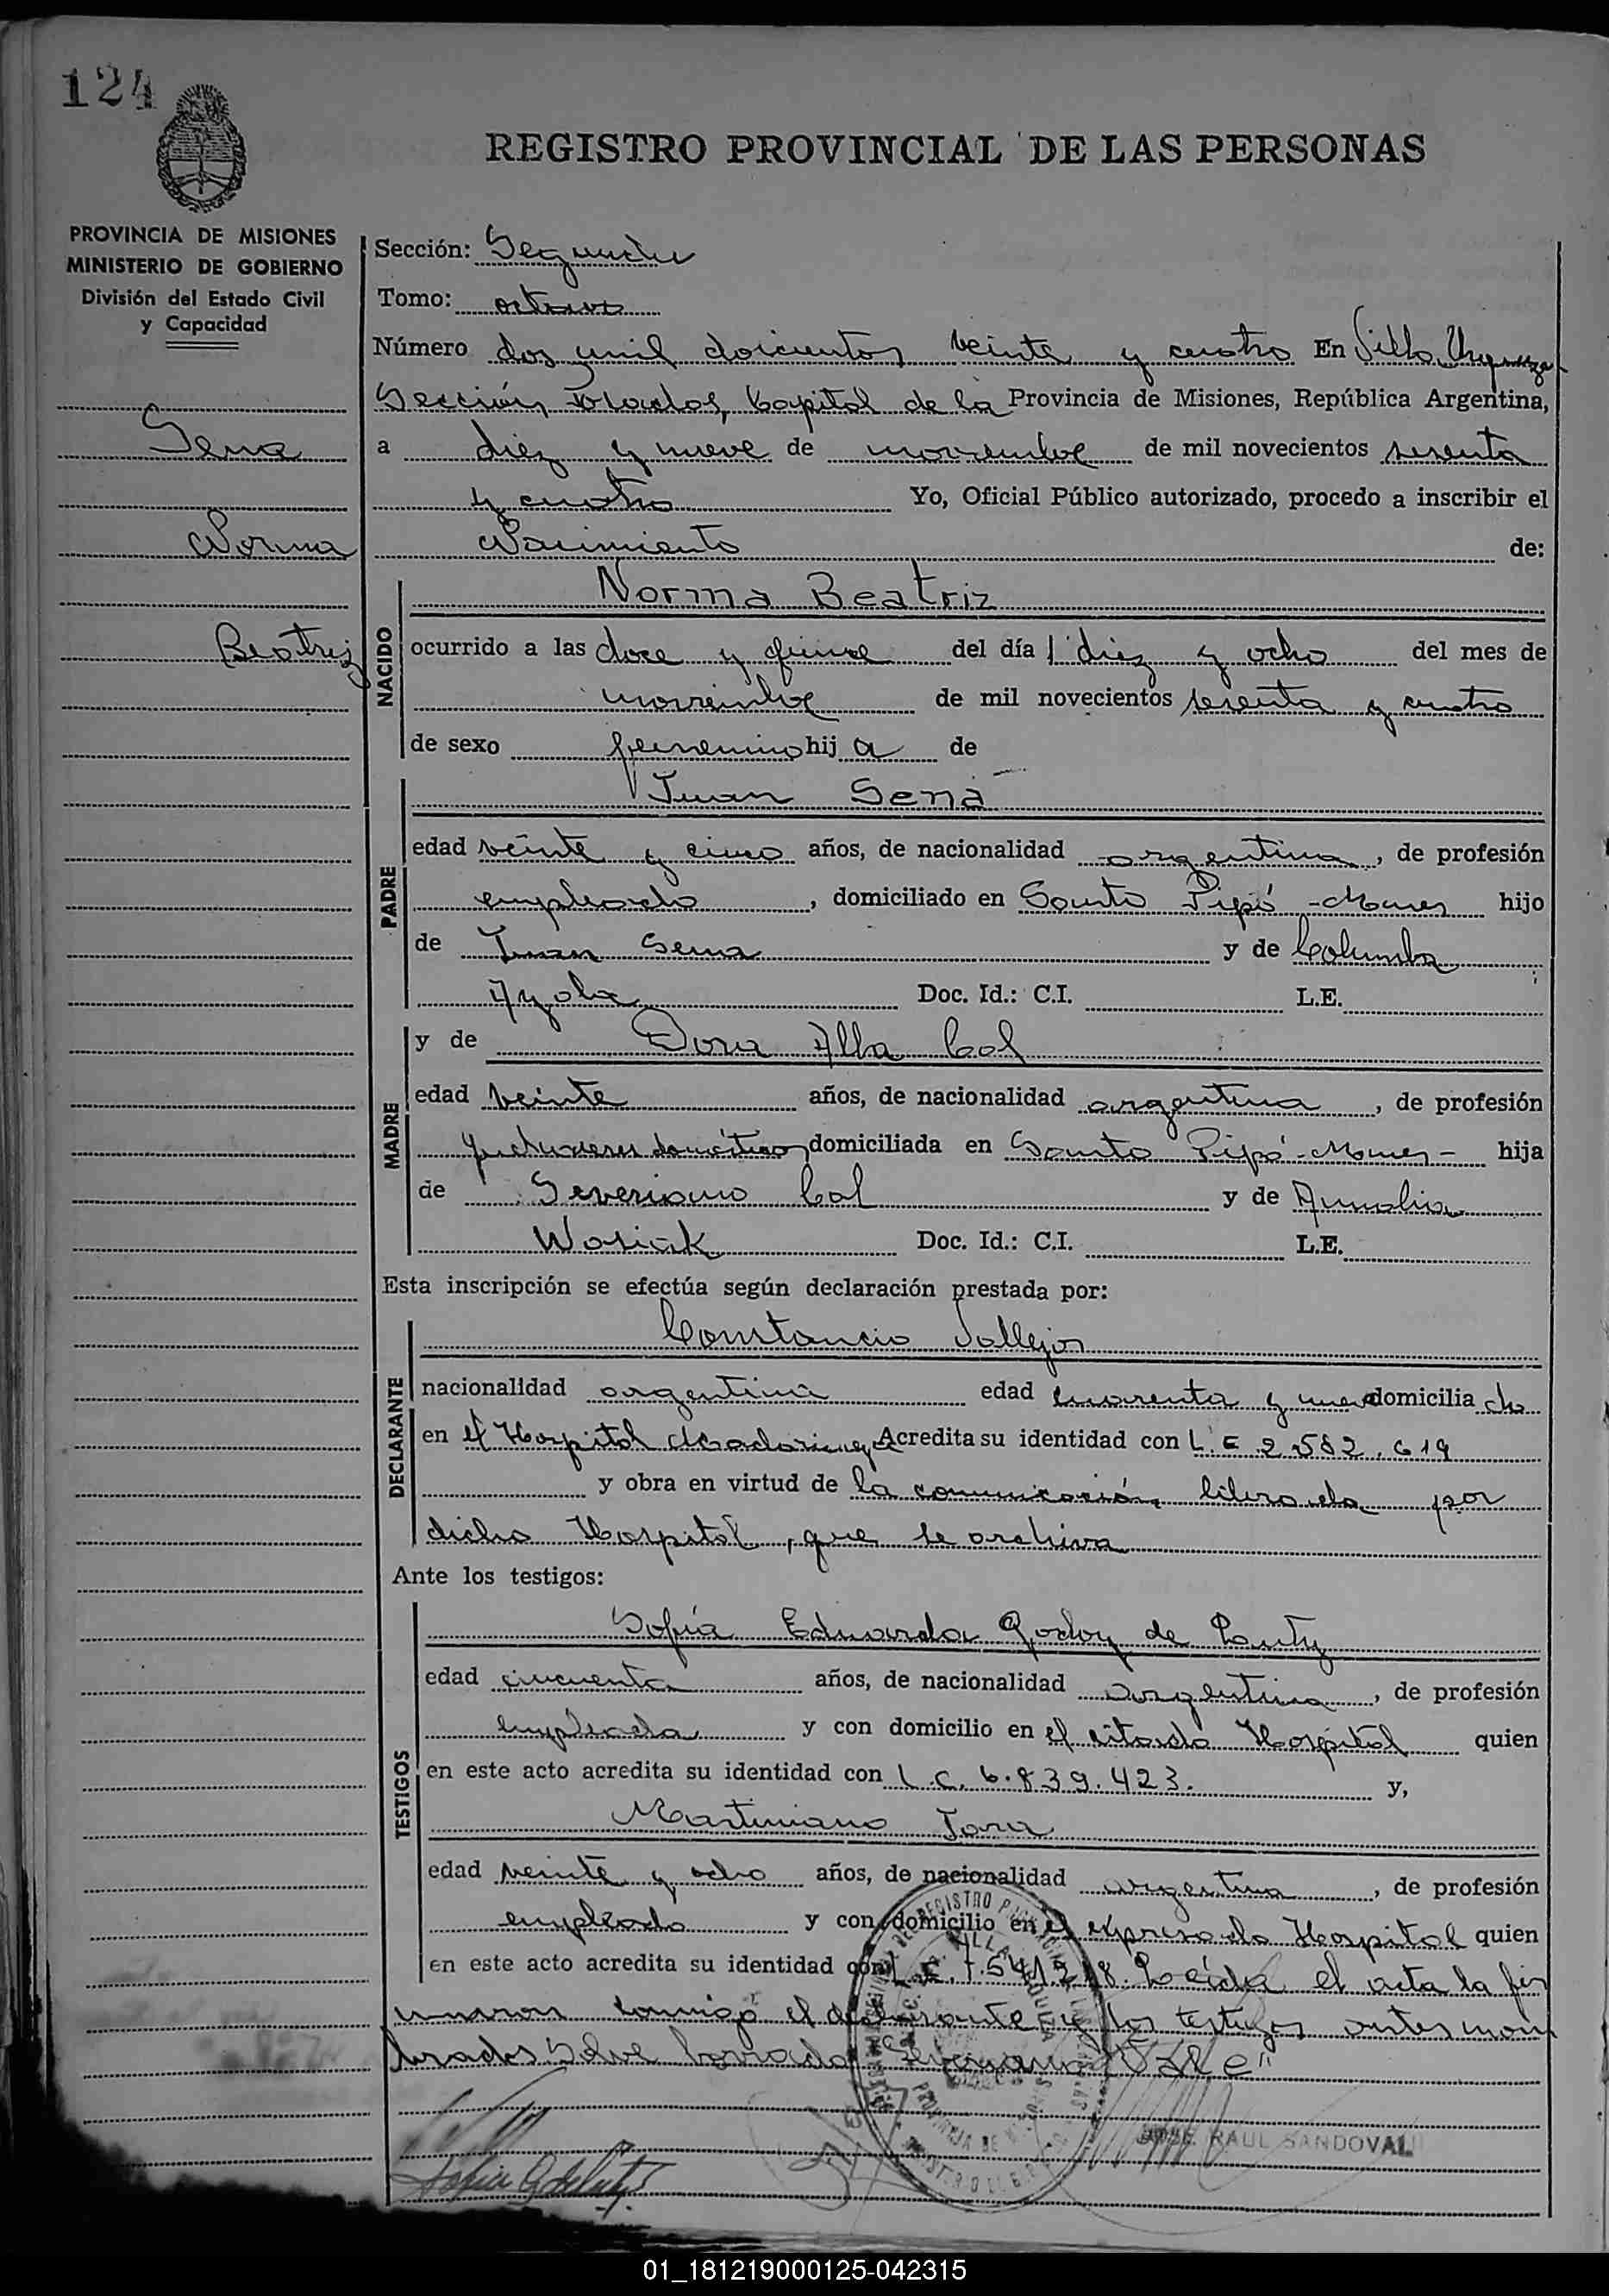 124
REGISTRO PROVINCIAL DE LAS PERSONAS
PROVINCIA DE MISIONES
MINISTERIO DE GOBIERNO
División del Estado Civil
y Capacidad
Sena
Norma
Beatriz
Sección: Segunda
Tomo: octavo
Número dos mil doscientos veinte y cuatro En Villa Urquiza
Sección Posadas, Capital de la Provincia de Misiones, República Argentina,
a diez y nueve de noviembre de mil novecientos sesenta
y cuatro Yo, Oficial Público autorizado, procedo a inscribir el
Nacimiento de:
NACIDO
Norma Beatriz
ocurrido a las doce y quince del día diez y ocho del mes de
noviembre de mil novecientos sesenta y cuatro
de sexo femenino hij a de
PADRE
Juan Sena
edad veinte y cinco años, de nacionalidad argentina, de profesión
empleado, domiciliado en Santo Pipó - Mnes hijo
de Juan Sena y de Columba
Ayala Doc. Id.: C.I. L.E.
MADRE
y de Dora Alba Col
edad veinte años, de nacionalidad argentina, de profesión
quehaceres domésticos domiciliada en Santo Pipó - Mnes - hija
de Severiano Col y de Amalia
Wosiak Doc. Id.: C.I. L.E.
Esta inscripción se efectúa según declaración prestada por:
DECLARANTE
Constancio Vallejos
nacionalidad argentina edad cuarenta y nueve domicilia do
en el Hospital Madariaga Acredita su identidad con L.E 2.582.619
y obra en virtud de la comunicación librada por
dicho Hospital, que se archiva
Ante los testigos:
TESTIGOS
Sofía Eduarda Godoy de
edad cincuenta años, de nacionalidad argentina, de profesión
empleada y con domicilio en el citado Hospital quien
en este acto acredita su identidad con L.C. 6.839.423. y,
Martiniano Jara
edad veinte y ocho años, de nacionalidad argentina, de profesión
empleado y con domicilio en el expresado Hospital quien
en este acto acredita su identidad con L.E. 7.541.218. Leída el acta la fir
maron conmigo el declarante y los testigos antes nom
brados Sobre borrado "Severiano" Vale"
JOSE RAUL SANDOVAL
01_181219000125-042315